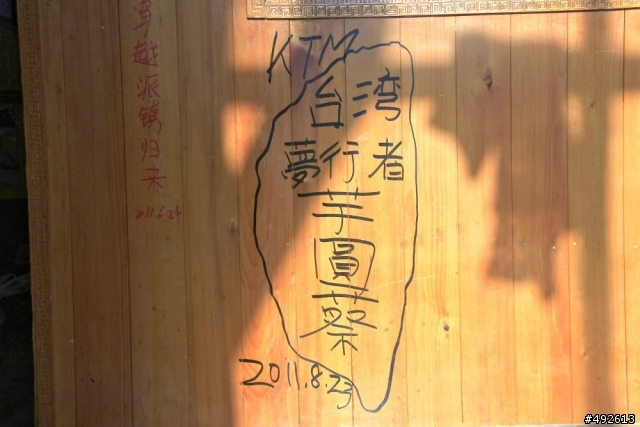 穿越派镇归来
2011.6.24
KTM
台湾
夢行者
芋
圓
蔡
2011.8.23
#492613